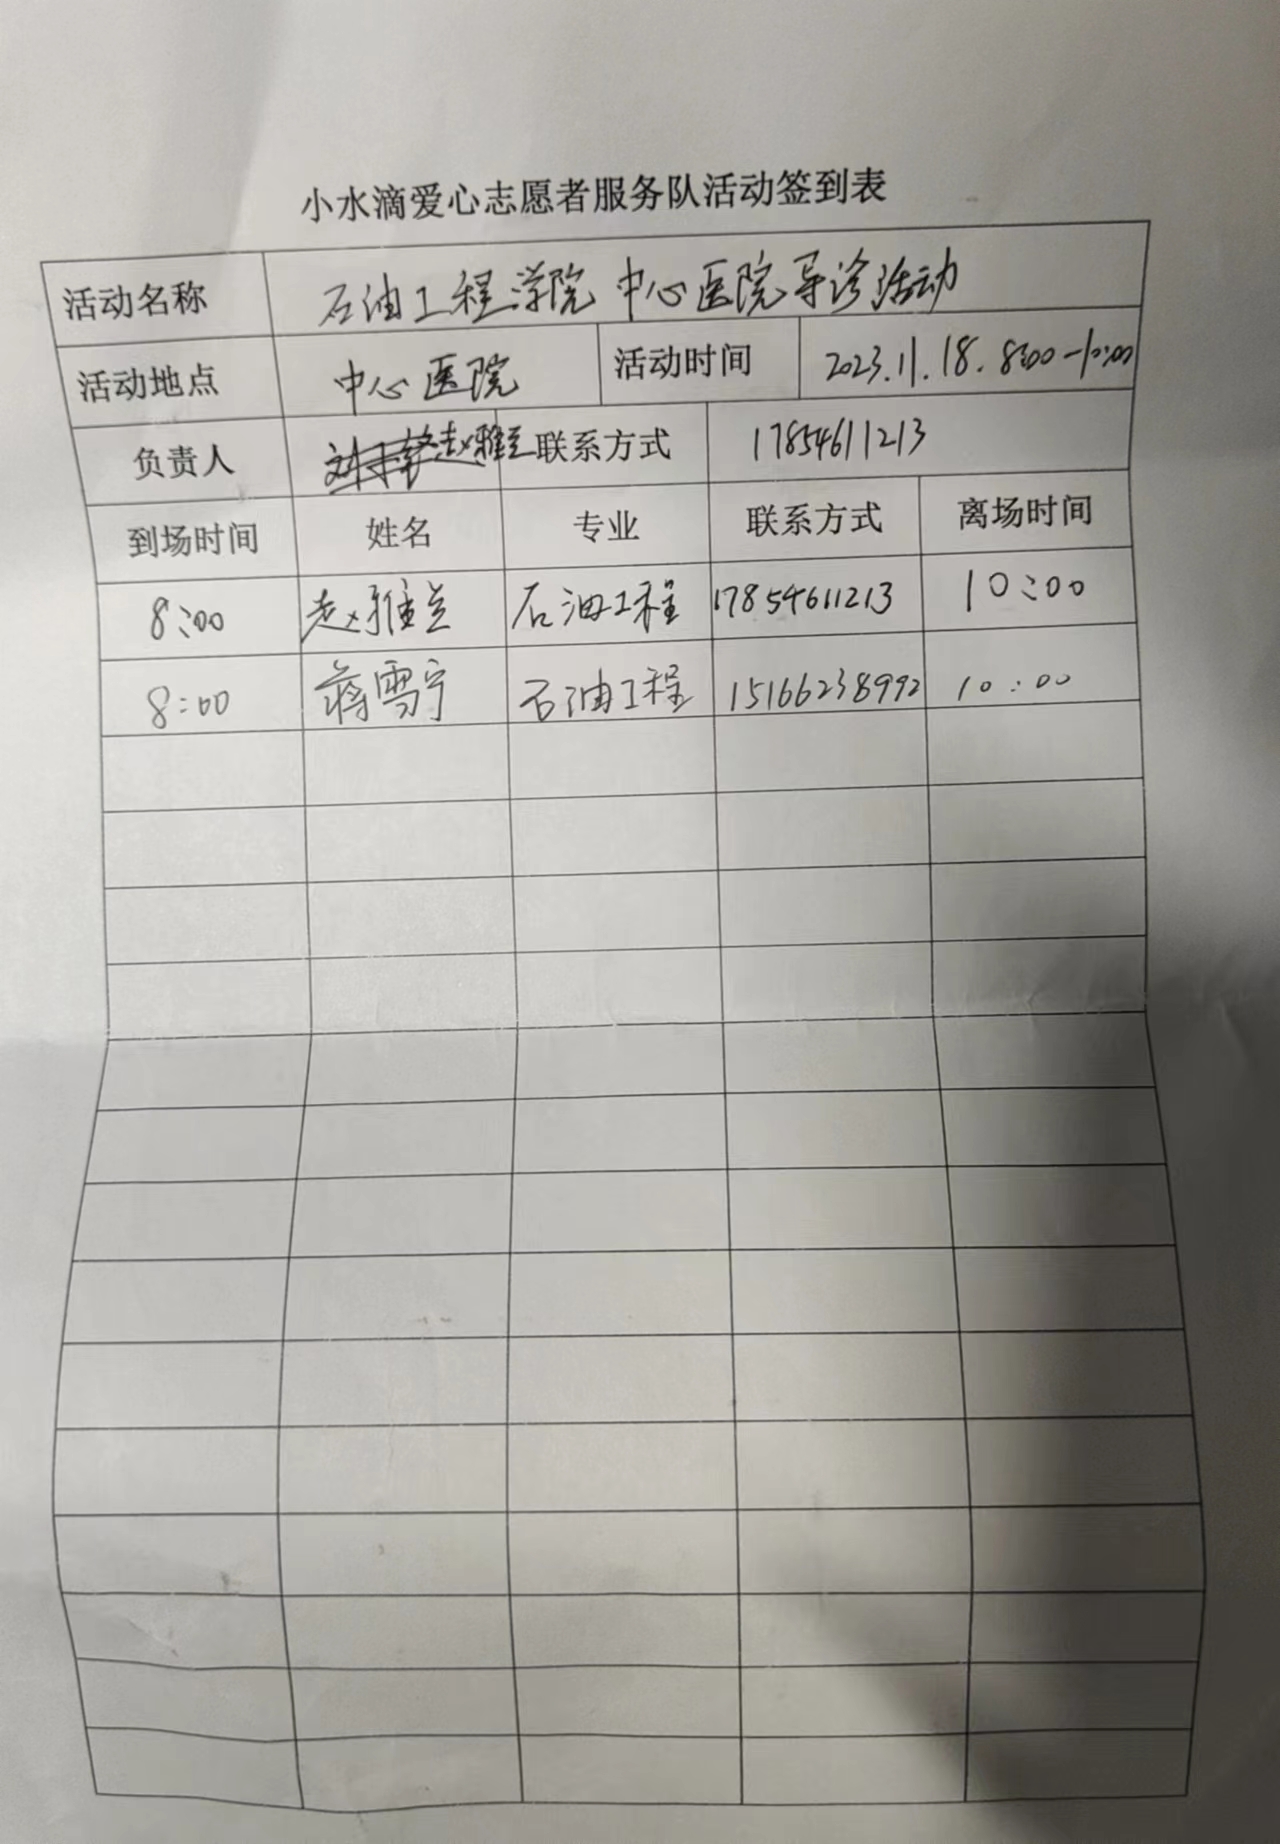 小水滴爱心志愿者服务队活动签到表
活动名称 石油工程学院 中心医院导诊活动
活动地点 中心医院 活动时间 2023.11.18. 8:00-10:00
负责人 赵雅兰 联系方式 17854611213
到场时间 姓名 专业 联系方式 离场时间
8:00 赵雅兰 石油工程 17854611213 10:00
8:00 蒋雪宁 石油工程 15166238992 10:00